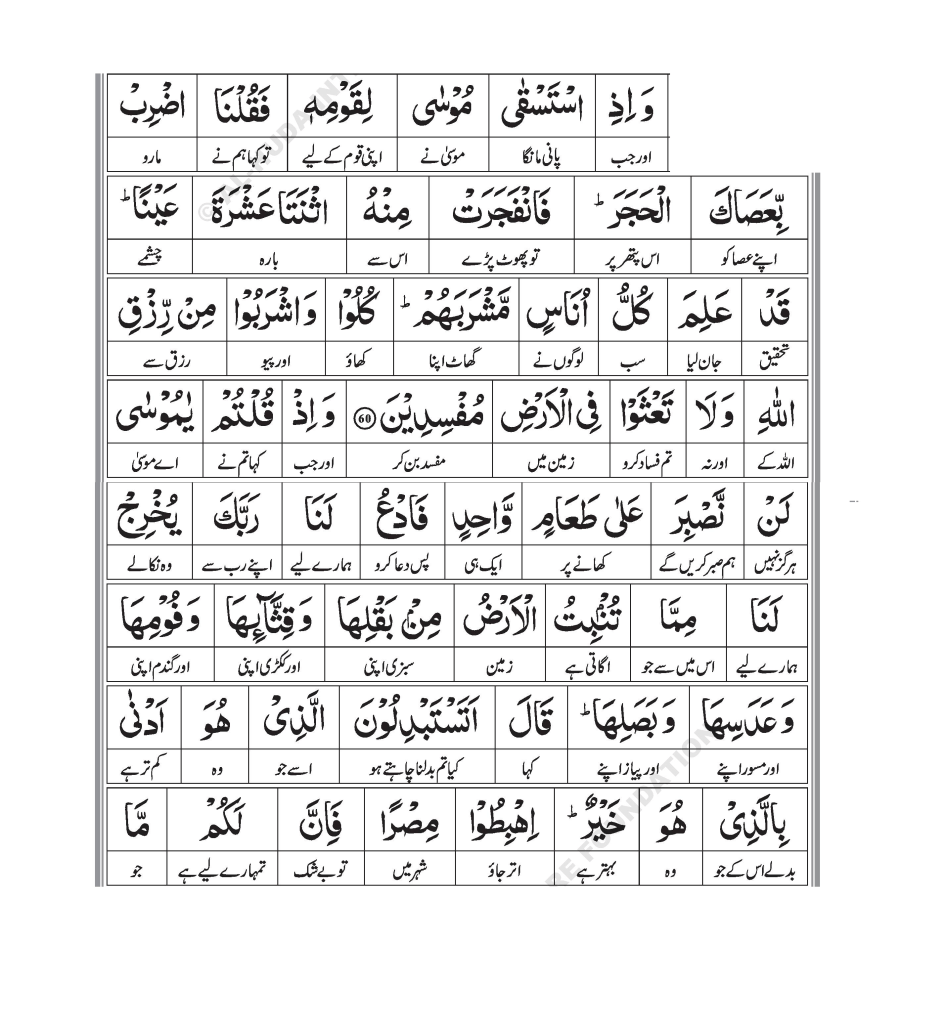 وَ اِذِ اسْتَسْقٰی مُوْسٰی لِقَوْمِهٖ فَقُلْنَا اضْرِبْ
اور جب پانی مانگا موسیٰ نے اپنی قوم کے لیے تو کہا ہم نے مارو
بِّعَصَاكَ الْحَجَرَ ؕ فَانْفَجَرَتْ مِنْهُ اثْنَتَا عَشْرَةَ عَیْنًا ؕ
اپنے عصا کو اس پتھر پر تو پھوٹ پڑے اس سے بارہ چشمے
قَدْ عَلِمَ كُلُّ اُنَاسٍ مَّشْرَبَهُمْ ؕ كُلُوْا وَ اشْرَبُوْا مِنْ رِّزْقِ
تحقیق جان لیا سب لوگوں نے گھاٹ اپنا کھاؤ اور پیو رزق سے
اللّٰهِ وَ لَا تَعْثَوْا فِی الْاَرْضِ مُفْسِدِیْنَ 60 وَ اِذْ قُلْتُمْ یٰمُوْسٰی
اللہ کے اور نہ تم فساد کرو زمین میں مفسد بن کر اور جب کہا تم نے اے موسیٰ
لَنْ نَّصْبِرَ عَلٰی طَعَامٍ وَّاحِدٍ فَادْعُ لَنَا رَبَّكَ یُخْرِجْ
ہرگز نہیں ہم صبر کریں گے کھانے پر ایک ہی پس دعا کرو ہمارے لیے اپنے رب سے وہ نکالے
لَنَا مِمَّا تُنْۢبِتُ الْاَرْضُ مِنْۢ بَقْلِهَا وَ قِثَّآئِهَا وَ فُوْمِهَا
ہمارے لیے اس میں سے جو اگاتی ہے زمین سبزی اپنی اور ککڑی اپنی اور گندم اپنی
وَ عَدَسِهَا وَ بَصَلِهَا ؕ قَالَ اَتَسْتَبْدِلُوْنَ الَّذِیْ هُوَ اَدْنٰی
اور مسور اپنے اور پیاز اپنے کہا کیا تم بدلنا چاہتے ہو اسے جو وہ کم تر ہے
بِالَّذِیْ هُوَ خَیْرٌ ؕ اِهْبِطُوْا مِصْرًا فَاِنَّ لَكُمْ مَّا
بدلے اس کے جو وہ بہتر ہے اتر جاؤ شہر میں تو بے شک تمہارے لیے ہے جو